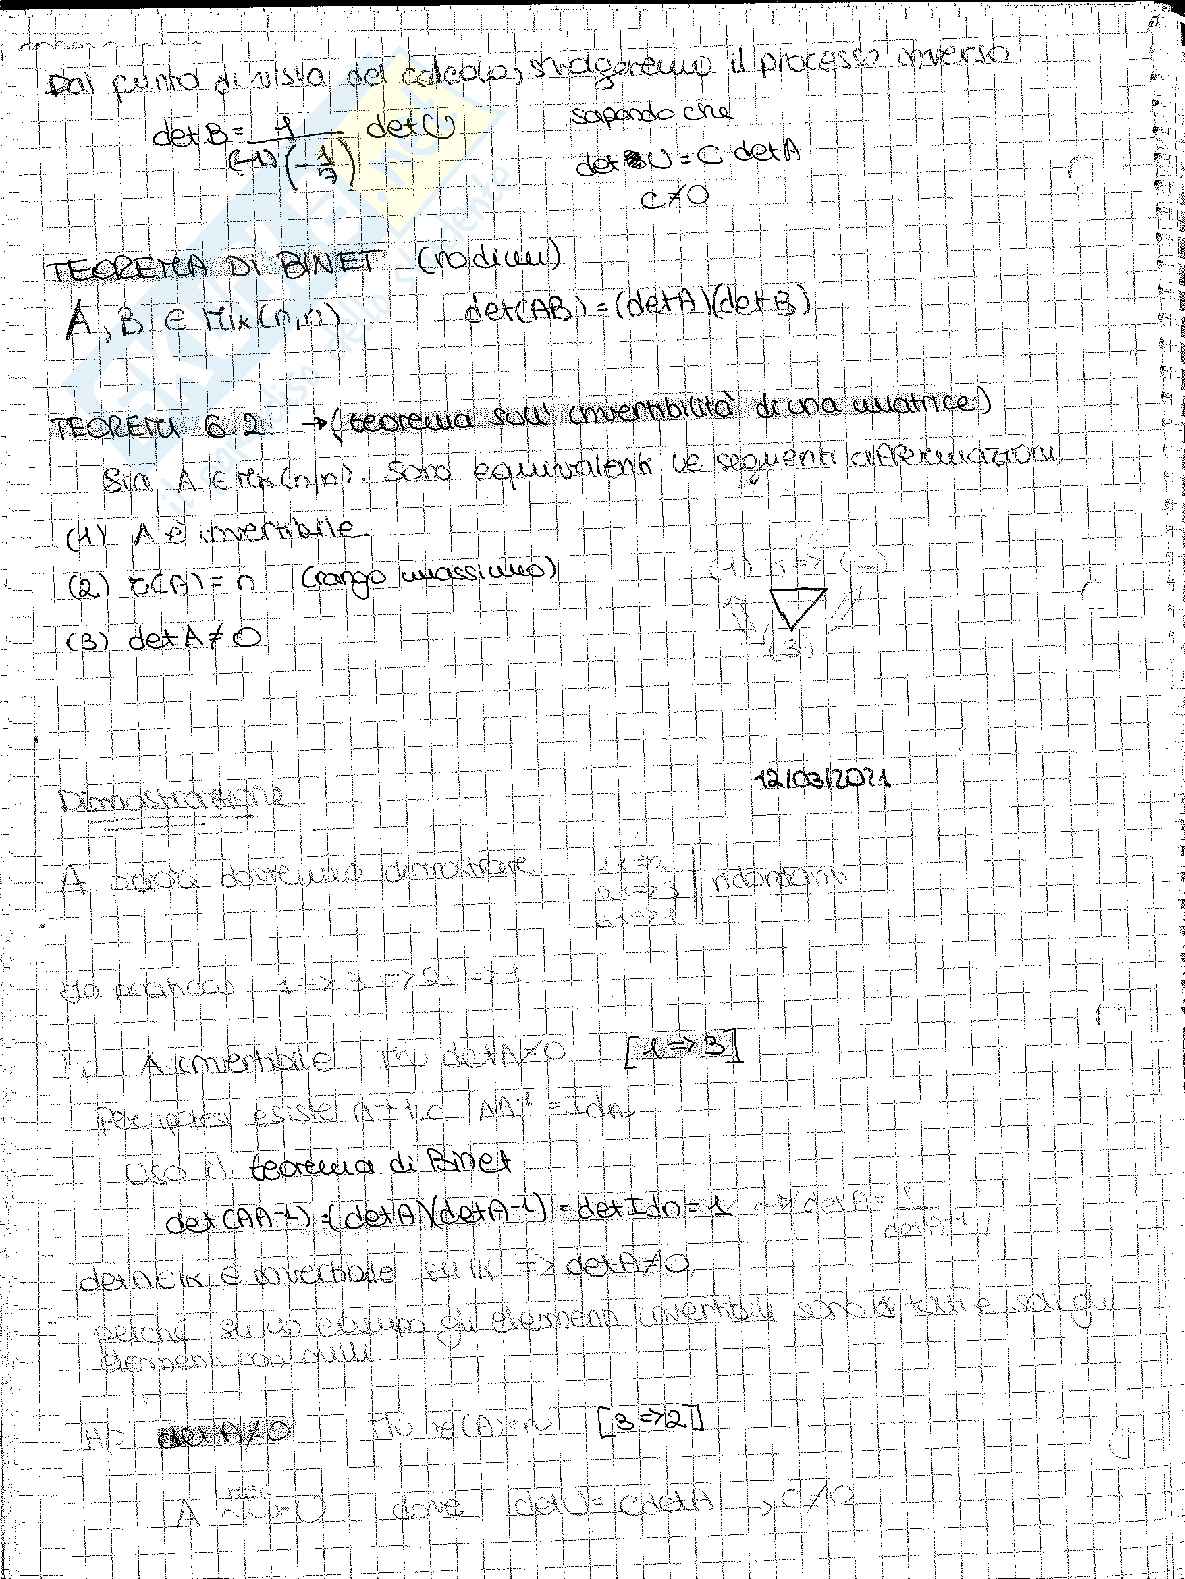 Dal punto di vista del calcolo, svolgeremo il processo inverso
det B = 1 / (-1)(-1/3) det U
sapendo che
det U = C · det A
C ≠ 0
TEOREMA DI BINET (no dim)
A, B ∈ Mk(n,n) det(AB) = (det A)(det B)
TEOREMA 6.2 → (teorema sull'invertibilità di una matrice)
Sia A ∈ Mk(n,n). Sono equivalenti le seguenti affermazioni
(1) A è invertibile
(2) r(A) = n (rango massimo)
(3) det A ≠ 0
(1) (2)
(3)
12/03/2021
Dimostrazione
A dovremmo dimostrare 1 <=> 2
2 <=> 3
ridondanti
1 => 3 => 2 => 1
A invertibile det A ≠ 0 [1 => 3]
Per ipotesi esiste A-1 t.c. AA-1 = Idn
Uso il teorema di Binet
det(AA-1) = (det A)(det A-1) = det Idn = 1 => det A = 1 / det A-1
det A ∈ K è invertibile su K => det A ≠ 0
perché su un campo gli elementi invertibili sono tutti e soli gli
elementi non nulli
Hp det A ≠ 0 Th r(A) = n [3 => 2]
A → U dove det U = C det A, C ≠ 0